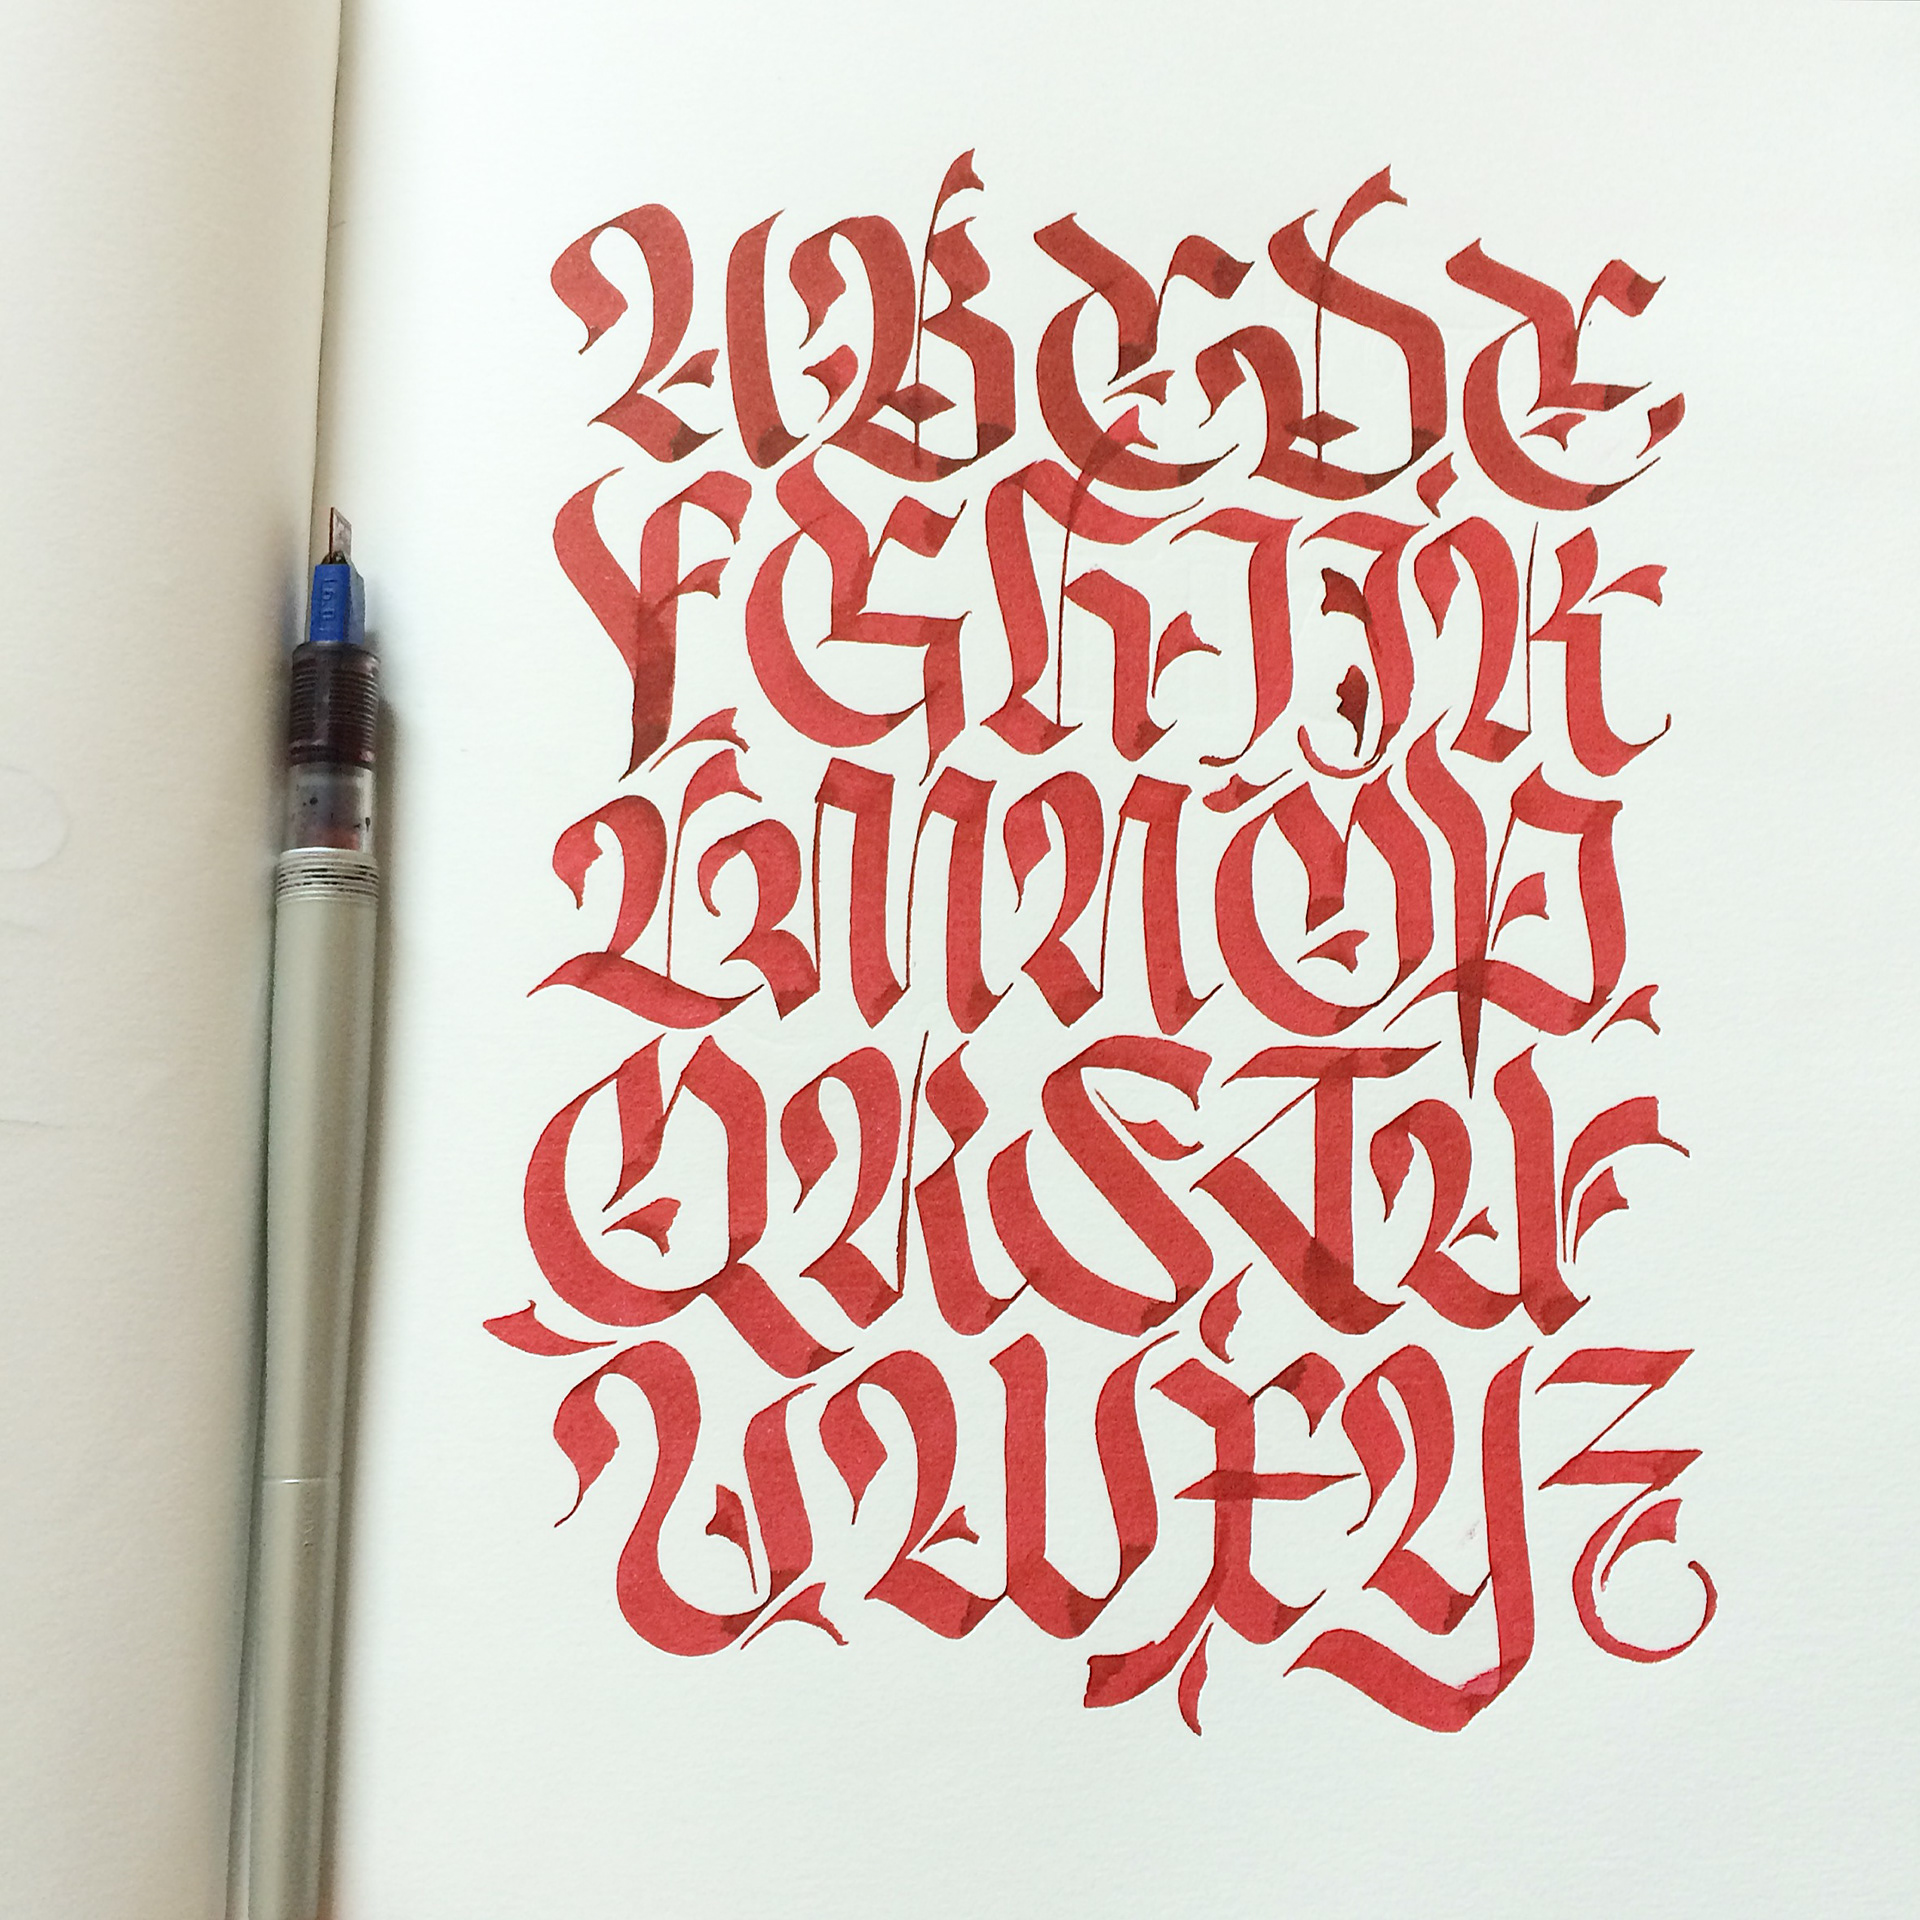 ABCDE
FGHIJK
LMNOP
QRSTU
VWXYZ
6.0